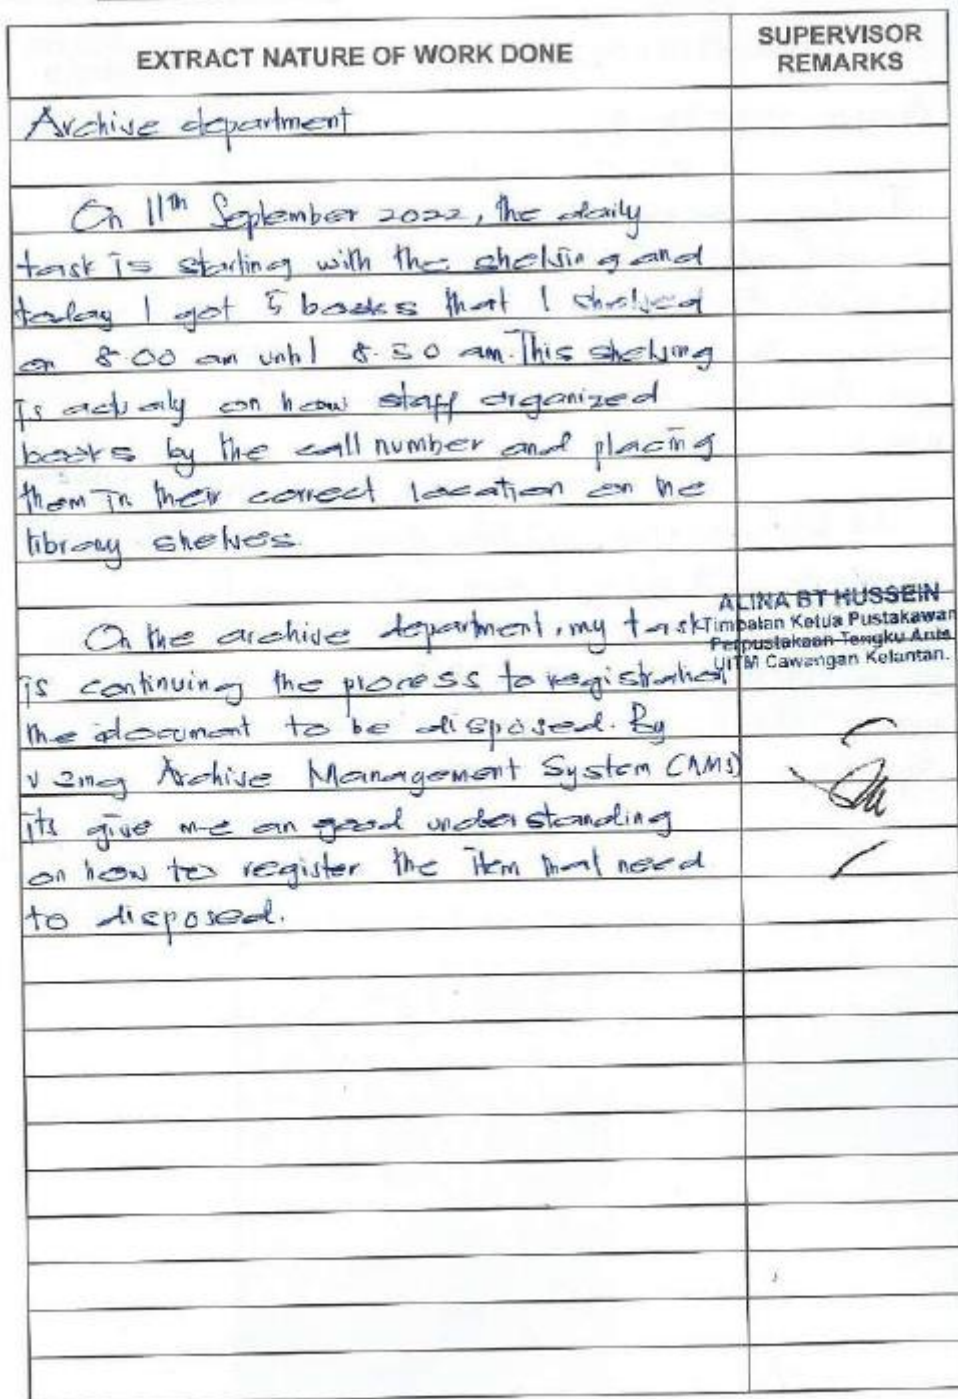 EXTRACT NATURE OF WORK DONE
SUPERVISOR
REMARKS
Archive department
On 11th September 2022, the daily
task is starting with the shelving and
today I got 5 books that I shelved
on 8.00 am until 8.50 am. This shelving
is actually on how staff organized
books by the call number and placing
them in their correct location on the
library shelves.
On the archive department, my task
is continuing the process to registration
the document to be disposed. By
using Archive Management System (AMS)
its give me an good understanding
on how to register the item that need
to disposed.
ALINA BT HUSSEIN
Timbalan Ketua Pustakawan
Perpustakaan Tengku Anis
UITM Cawangan Kelantan.